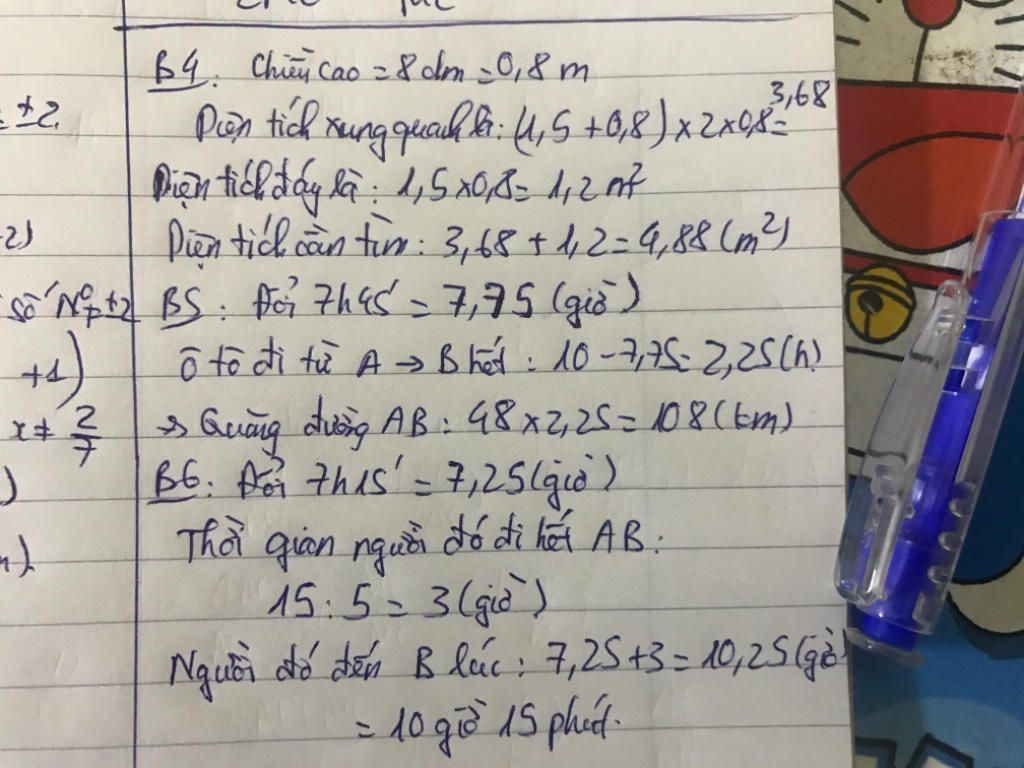 B4: Chiều cao = 8dm = 0,8 m
Diện tích xung quanh là: (1,5 + 0,8) x 2 x 0,8 = 3,68
Diện tích đáy là: 1,5 x 0,8 = 1,2 m²
Diện tích cần tìm: 3,68 + 1,2 = 4,88 (m²)
B5: Đổi 7h45' = 7,75 (giờ)
Ô tô đi từ A → B hết: 10 - 7,75 = 2,25 (h)
→ Quãng đường AB: 48 x 2,25 = 108 (km)
B6: Đổi 7h15' = 7,25 (giờ)
Thời gian người đó đi hết AB:
15 : 5 = 3 (giờ)
Người đó đến B lúc: 7,25 + 3 = 10,25 (giờ)
= 10 giờ 15 phút.
±2
-2)
số N⁰ p ±2
+1)
x ≠ 2/7